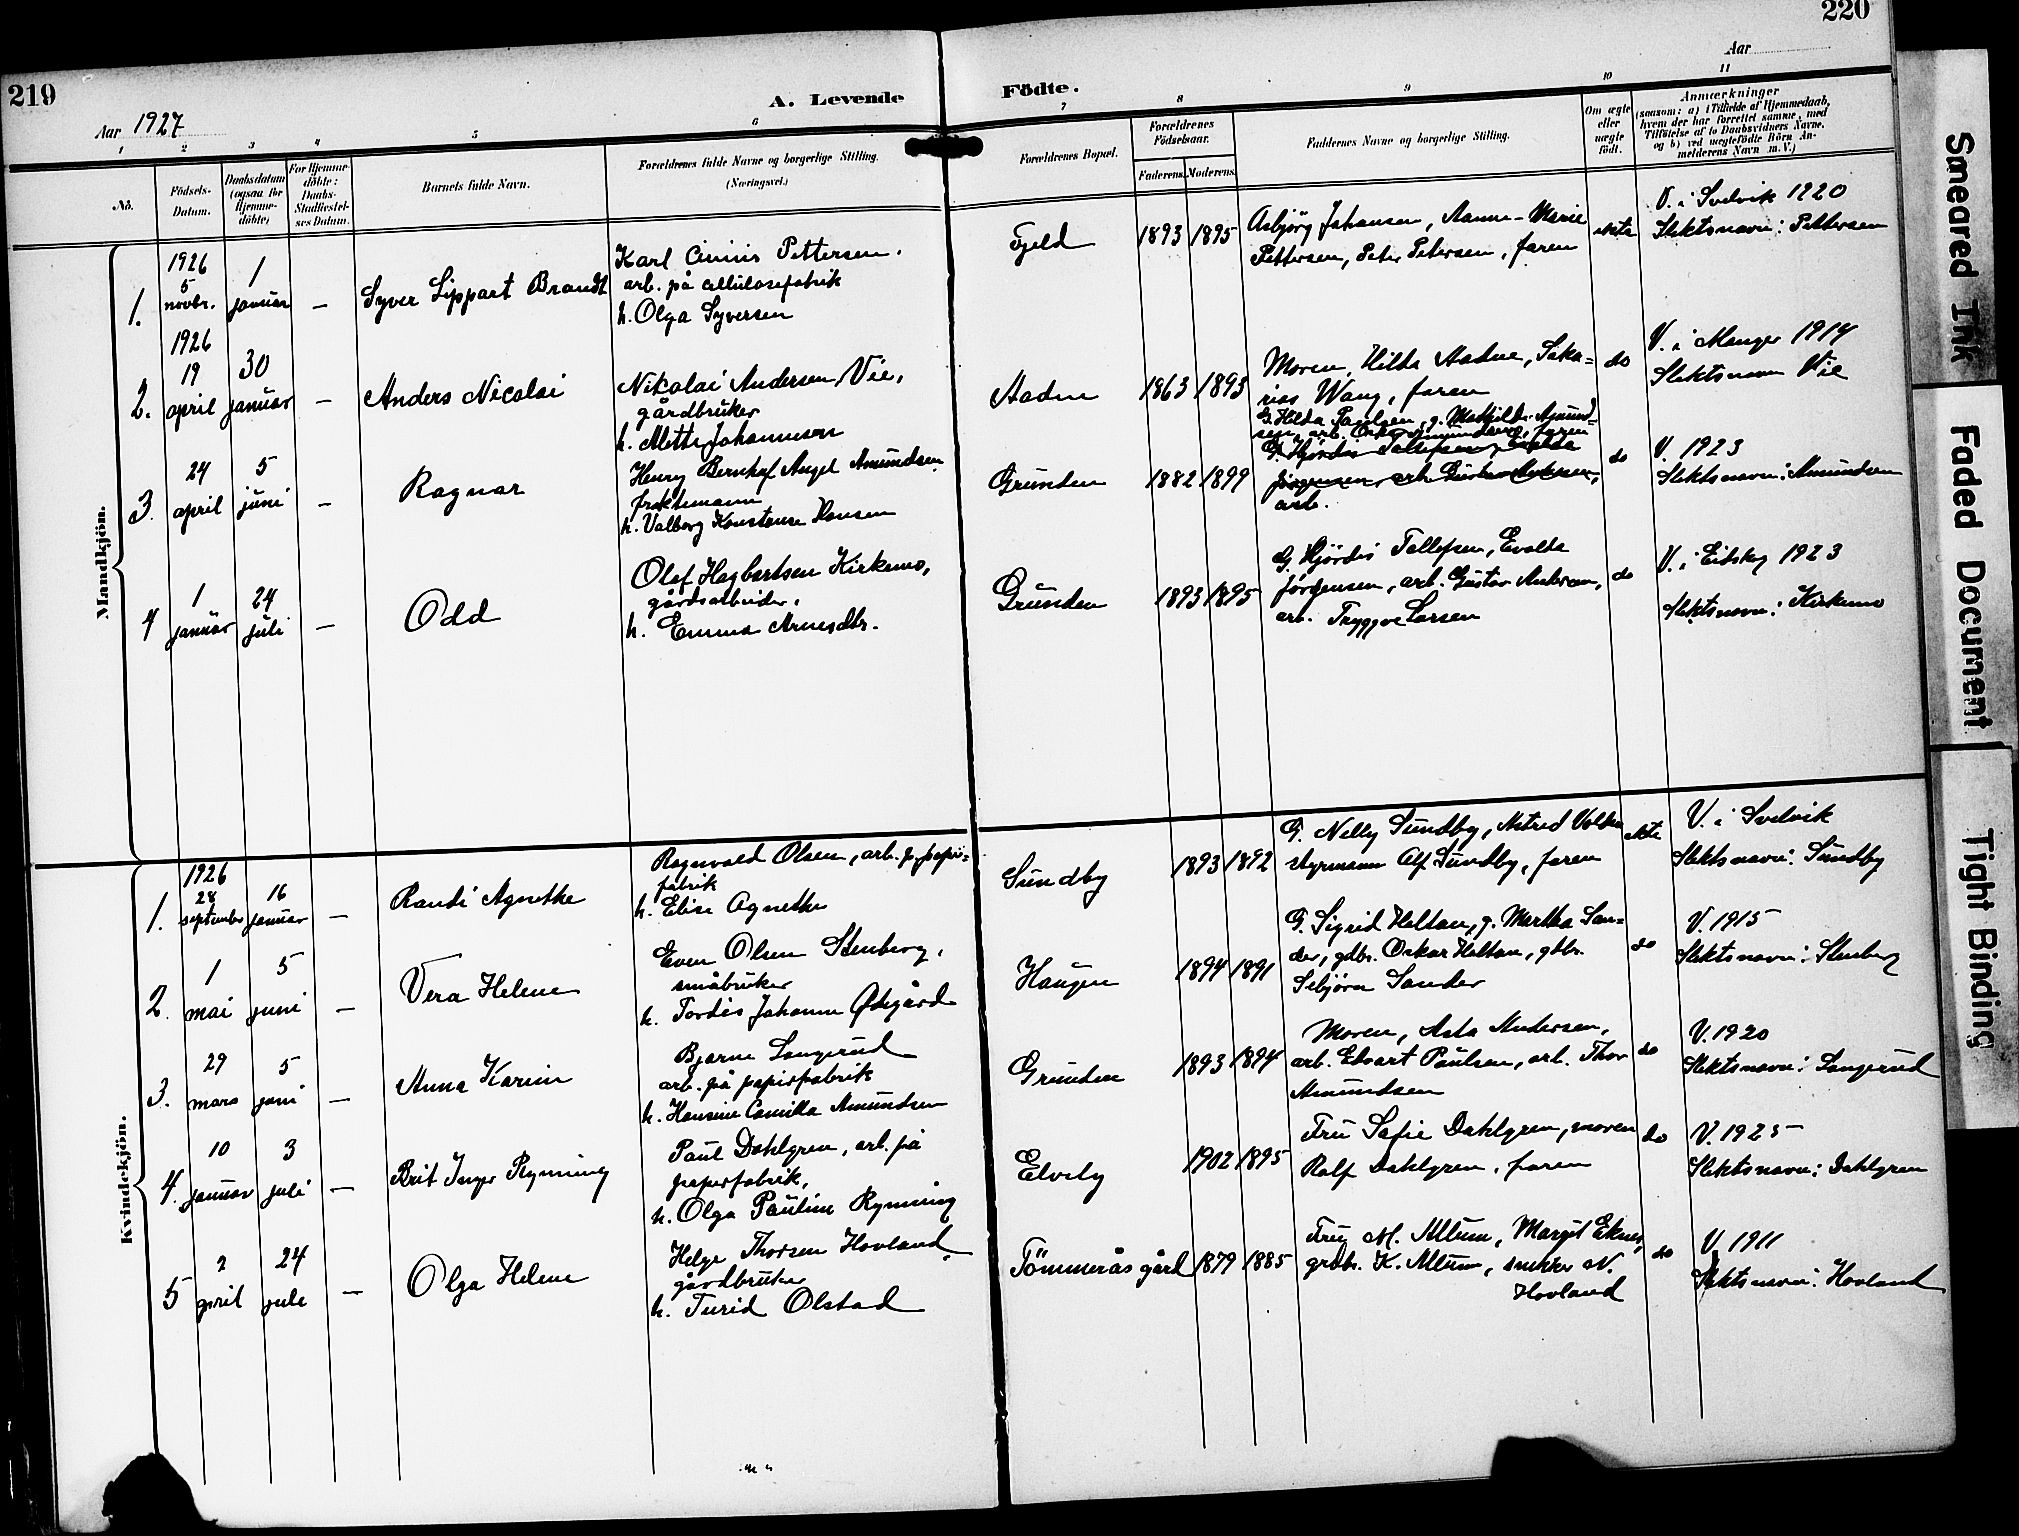 219
220
Aar 1927
A. Levende
Födte.
Aar
1
2
3
4
5
6
7
8
9
10
11
No.
Födsels-
Datum.
Daabsdatum
(ogsaa for
Hjemme-
döbte)
For Hjemme-
döbte:
Daabs-
Stadfæstel-
ses Datum.
Barnets fulde Navn.
Forældrenes fulde Navne og borgerlige Stilling.
(Næringsvei.)
Forældrenes Bopæl.
Forældrenes
Födselsaar.
Faderens.
Moderens.
Faddernes Navne og borgerlige Stilling.
Om ægte
eller
uægte
födt.
Anmærkninger
(saasom: a) i Tilfælde af Hjemmedaab,
hvem der har forrettet samme, med
Tilföielse af to Daabsvidners Navne,
og b) ved uægtefödte Börn An-
melderens Navn m. V.)
Mandkjön.
1.
1926
5
novbr.
1
januar
—
Syver Lippart Brandt
Karl Pettersen.
arb. på cellulosefabrik
h. Olga Syversen
Fjeld
1893
1895
Asbjörg Johansen, Anna-Marie
Pettersen, Peter Petersen, faren
ekte
V. i Svelvik 1920
Slektsnavn: Pettersen
2.
1926
19
april
30
januar
—
Anders Nicolai
Nikolai Andersen Vie,
gårdbruker
h. Mette Johannesen
Aadne
1863
1893
Moren, Hilda Aadne, Saka-
rias Wang, faren
do
V. i Manger 1914
Slektsnavn Vie
3.
24
april
5
juni
—
Ragnar
Henry Bernhof Angel Amundsen
fraktemann
h. Valborg Konstanse Hansen
Grunden
1882
1899
G. Hilda Paulsen, g. Mathilde Amund-
sen, arb. Oskar Amundsen, faren
G. Hjördis Tollefsen, Evalda
Jörgensen, arb. Gustav Andersen,
arb.
do
V. 1923
Slektsnavn: Amundsen
4
1
januar
24
juli
—
Odd
Olaf Hagbartsen Kirkemo,
gårdsarbeider,
h. Emma Arnesdtr.
Grunden
1893
1895
G. Hjördis Tollefsen, Evalda
Jörgensen, arb. Gustav Andersen,
arb. Tryggve Larsen
do
V. i Eidskog 1923
Slektsnavn: Kirkemo
Kvindekjön.
1.
1926
28
september
16
januar
—
Randi Agnethe
Ragnvald Olsen, arb. p. papir-
fabrik
h. Elise Agnethe
Sundby
1893
1892
G. Nelly Sundby, Astrid Volden
styrmann Alf Sundby, faren
ekte
V. i Svelvik
Slektsnavn: Sundby
2.
1
mai
5
juni
—
Vera Helene
Even Olsen Stenberg,
småbruker
h. Tordis Johanne Ødegård
Haugen
1894
1891
G. Sigrid Heltan, g. Martha San-
der, gdbr. Oskar Heltan, gbbr.
Sebjörn Sander
do
V. 1915
Slektsnavn: Stenberg
3.
29
mars
5
juni
—
Anna Karin
Bjarne Langerud
arb. på papirfabrik
h. Hansine Camilla Amundsen
Grunden
1893
1894
Moren, Asta Andersen,
arb. Edvart Paulsen, arb. Thor
Amundsen
do
V. 1920
Slektsnavn: Langerud
4.
10
januar
3
juli
—
Brit Inger Ryming
Paul Dahlgren, arb. på
papirfabrik,
h. Olga Pauline Ryming
Elvely
1902
1895
Fru Sofie Dahlgren, moren
Rolf Dahlgren, faren
do
V. 1925
Slektsnavn: Dahlgren
5
2
april
24
juli
—
Olga Helene
Helge Thorsen Hovland
gårdbruker
h. Turid Olstad
Tömmerås gård
1879
1885
Fru M. Allum, Margit Eknes,
grdbr. K. Allum, snekker N.
Hovland
do
V. 1911
Slektsnavn: Hovland
Smeared Ink
Faded Document
Tight Binding